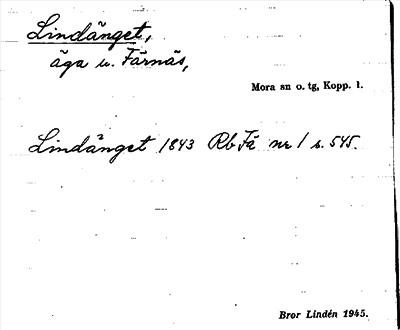 Lindänget,
äga u. Färnäs,
Mora sn o. tg, Kopp. l.
Lindänget 1843 Rb Fä nr 1 s. 545.
Bror Lindén 1945.